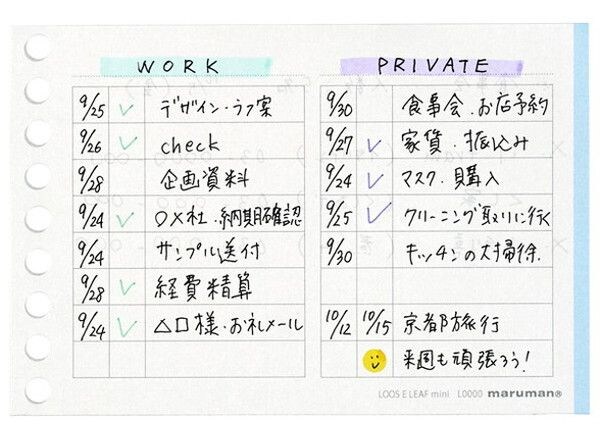 WORK
9/25 ✓ デザイン・ラフ案
9/26 ✓ check
9/28 企画資料
9/24 ✓ ○×社・納期確認
9/24 サンプル送付
9/28 ✓ 経費精算
9/24 ✓ △□様・お礼メール
PRIVATE
9/30 食事会・お店予約
9/27 ✓ 家賃・振込み
9/24 ✓ マスク・購入
9/25 ✓ クリーニング取りに行く
9/30 キッチンの大掃除.
10/12 10/15 京都旅行
来週も頑張ろう!
LOOSE LEAF mini L0000 maruman®